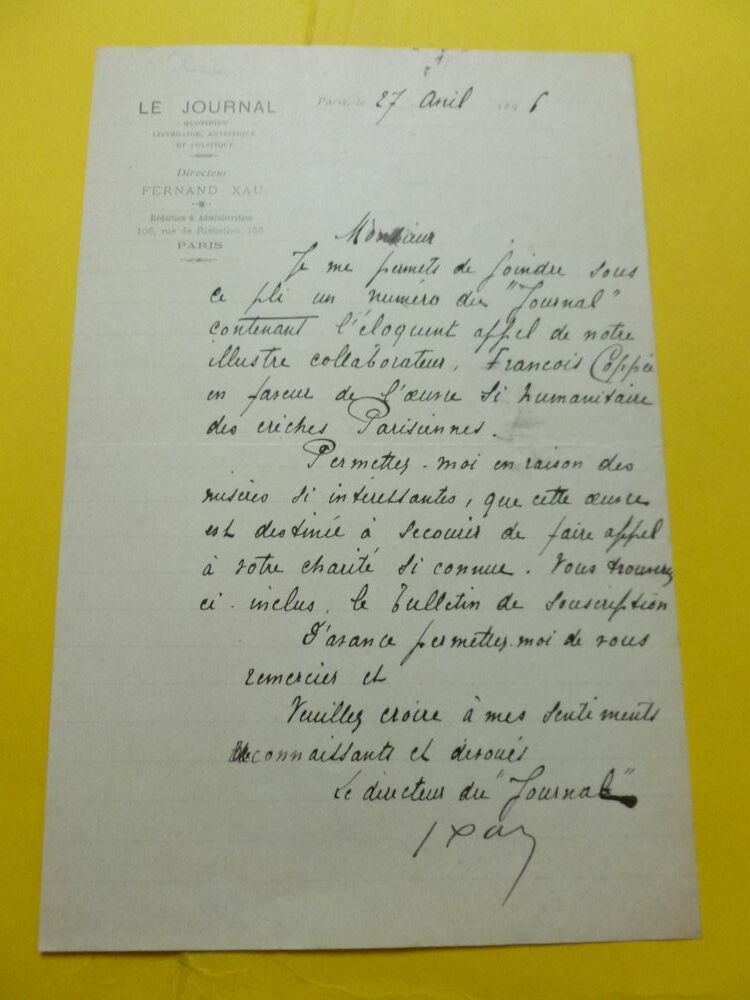 LE JOURNAL
QUOTIDIEN
LITTÉRAIRE, ARTISTIQUE
ET POLITIQUE
Directeur
FERNAND XAU
Rédaction & Administration
106, rue de Richelieu, 106
PARIS
Paris, le 27 Avril 1896
Monsieur
Je me permets de joindre sous
ce pli un numéro du "Journal"
contenant l'éloquent appel de notre
illustre collaborateur, François Coppée
en faveur de l'œuvre si humanitaire
des crèches Parisiennes.
Permettez-moi en raison des
misères si intéressantes, que cette œuvre
est destinée à secourir de faire appel
à votre charité si connue. Vous trouverez
ci-inclus, le Bulletin de souscription
D'avance permettez-moi de vous
remercier et
Veuillez croire à mes sentiments
reconnaissants et dévoués
Le directeur du "Journal"
Xau